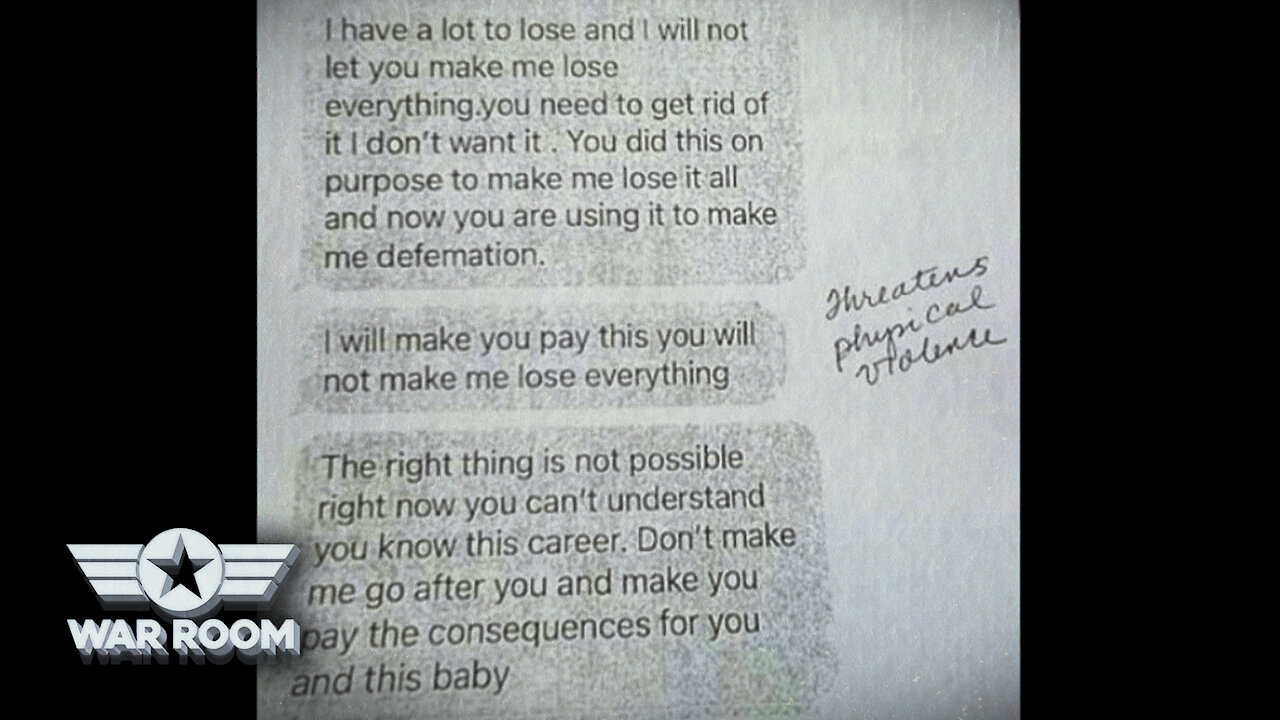 I have a lot to lose and I will not
let you make me lose
everything.you need to get rid of
it I don't want it . You did this on
purpose to make me lose it all
and now you are using it to make
me defemation.
I will make you pay this you will
not make me lose everything
The right thing is not possible
right now you can't understand
you know this career. Don't make
me go after you and make you
pay the consequences for you
and this baby
Threatens
physical
violence
WAR ROOM